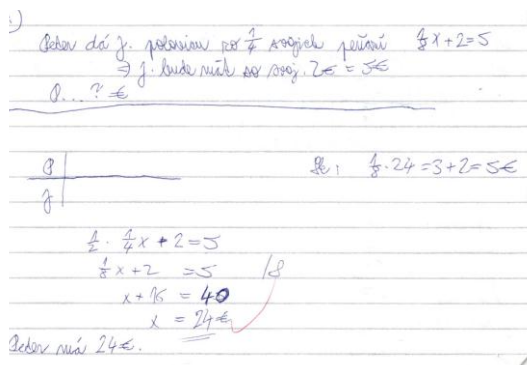 .)
Peter dá J. polovicu zo 1/4 svojich peňazí 1/8x + 2 = 5
⇒ J. bude mať so svoj. 2€ = 5€
P...? €
P
J
Sk: 1/8 · 24 = 3 + 2 = 5€
1/2 · 1/4x + 2 = 5
1/8x + 2 = 5 /8
x + 16 = 40
x = 24€
Peter má 24€.